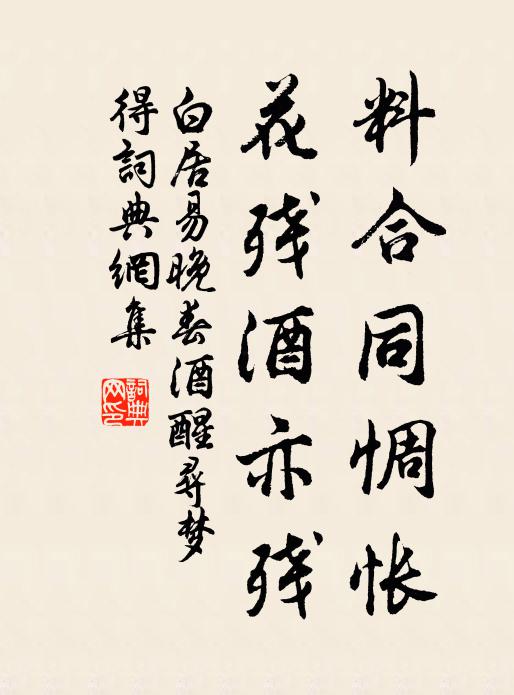 料合同惆怅
花残酒亦残
白居易晚春酒醒寻梦
得詞典網集
詞典
网印